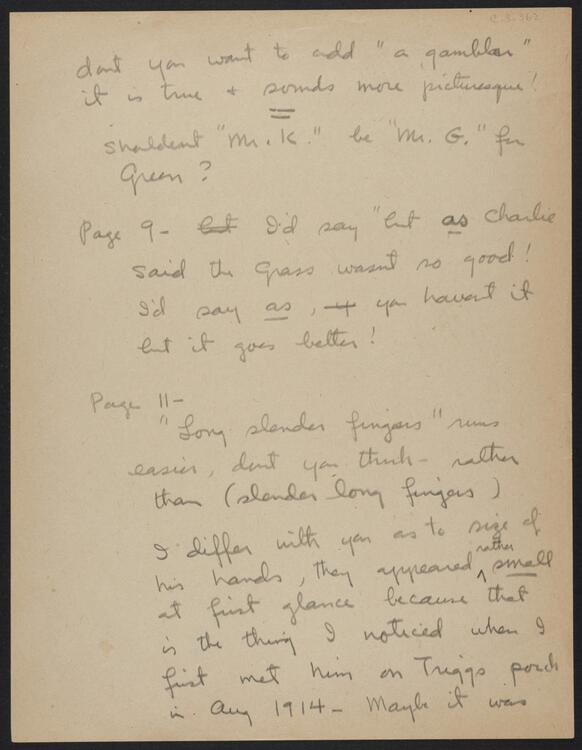 C.S.362
dont you want to add "a gambler"
it is true + sounds more picturesque!
shouldent "Mr. K." be "Mr. G." for
Green?
Page 9- but I'd say "but as Charlie
said the Grass wasnt so good!
I'd say as, you havent it
but it goes better!
Page 11-
"Long slender fingers" runs
easier, dont you think - rather
than (slender long fingers)
I differ with you as to size of
his hands, they appeared rather small
at first glance because that
is the thing I noticed when I
first met him on Triggs porch
in Aug 1914 - Maybe it was